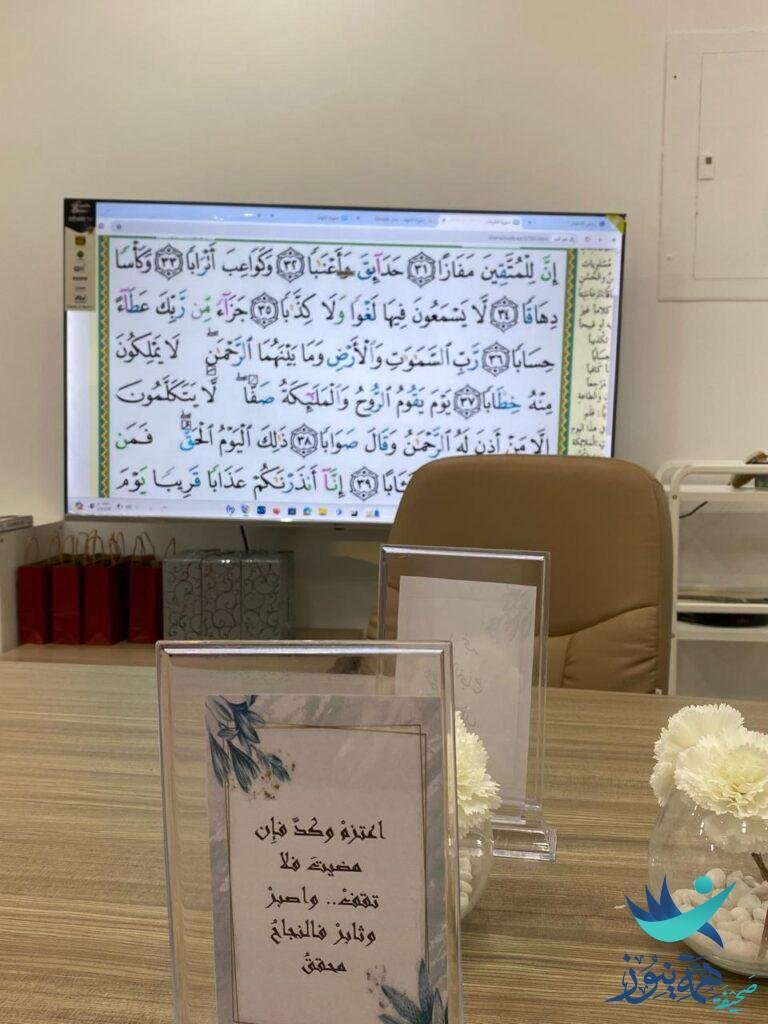 إِنَّ لِلْمُتَّقِينَ مَفَازًا ٣١ حَدَآئِقَ وَأَعْنَٰبًا ٣٢ وَكَوَاعِبَ أَتْرَابًا ٣٣ وَكَأْسًا
دِهَاقًا ٣٤ لَّا يَسْمَعُونَ فِيهَا لَغْوًا وَلَا كِذَّٰبًا ٣٥ جَزَآءً مِّن رَّبِّكَ عَطَآءً
حِسَابًا ٣٦ رَّبِّ السَّمَٰوَٰتِ وَالْأَرْضِ وَمَا بَيْنَهُمَا الرَّحْمَٰنِ لَا يَمْلِكُونَ
مِنْهُ خِطَابًا ٣٧ يَوْمَ يَقُومُ الرُّوحُ وَالْمَلَٰٓئِكَةُ صَفًّا لَّا يَتَكَلَّمُونَ
إِلَّا مَنْ أَذِنَ لَهُ الرَّحْمَٰنُ وَقَالَ صَوَابًا ٣٨ ذَٰلِكَ الْيَوْمُ الْحَقُّ فَمَن
٣٩ إِنَّآ أَنذَرْنَٰكُمْ عَذَابًا قَرِيبًا يَوْمَ
اعتزمْ وكدَّ فإن
مضيتَ فلا
تقفْ.. واصبرْ
وثابرْ فالنجاحُ
محققُ
صحيفة همة نيوز